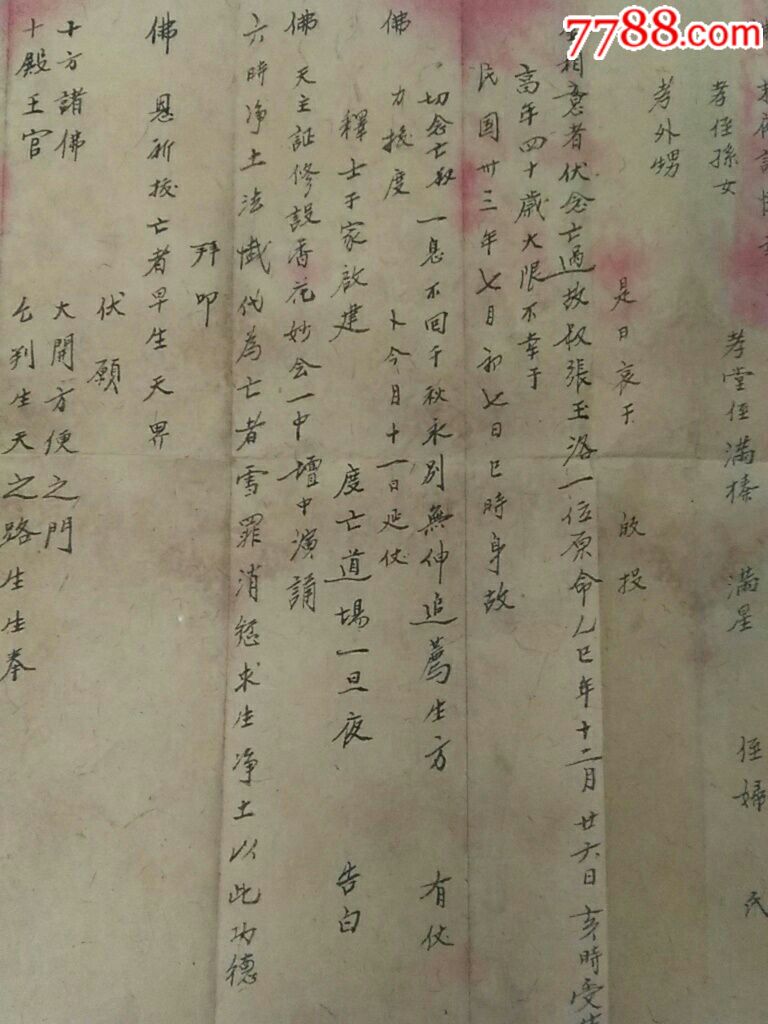 7788.com
孝堂侄滿榛 滿星 侄婦 氏
孝侄孫女
孝外甥
是日哀于 皈投
意者伏念亡過故叔張玉洛一位原命乙巳年十二月廿六日亥時受生
高年四十歲大限不幸于
民国卅三年七月初七日巳時身故
切念亡叔一息不回千秋永别無伸追薦生方 有仗
佛 力拔度 卜今月十一日延仗
釋士于家啟建 度亡道場一旦夜 告白
佛 天主証修設香花妙会一中 壇中演誦
六時净土法懺代為亡者雪罪消愆求生净土以此功德
拜叩
佛 恩祈拔亡者早生天界
伏願
十方諸佛 大開方便之門
十殿王官 乞判生天之路生生奉